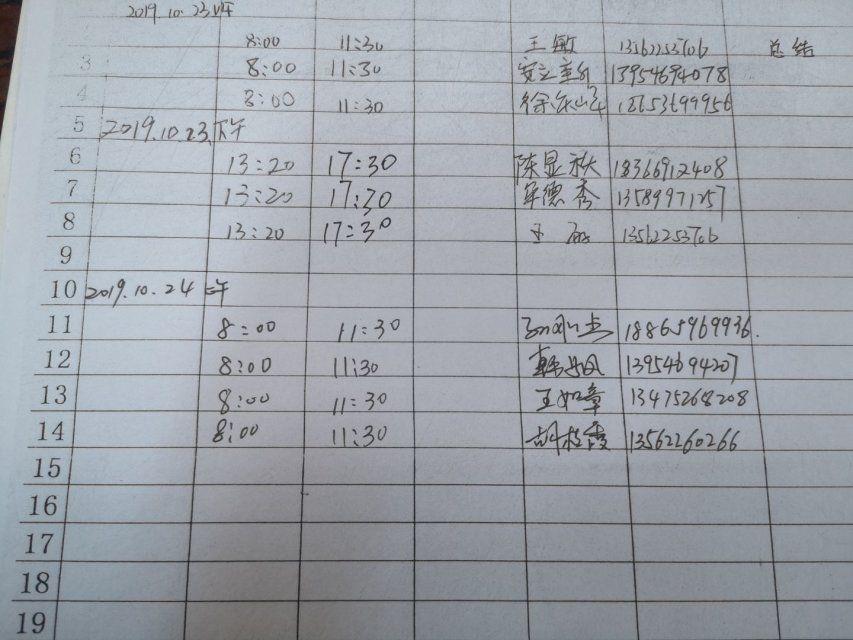 2019.10.23上午
8:00 11:30 王敏 13562253706 总结
3 8:00 11:30 13954694078
4 8:00 11:30
5 2019.10.23.下午
6 13:20 17:30 陈显秋 18366912408
7 13:20 17:30 德秀 13589971257
8 13:20 17:30 王敏 13562253706
9
10 2019.10.24上午
11 8:00 11:30 18865969936.
12 8:00 11:30 13954694207
13 8:00 11:30 王如章 13475268208
14 8:00 11:30 胡 霞 13562260266
15
16
17
18
19